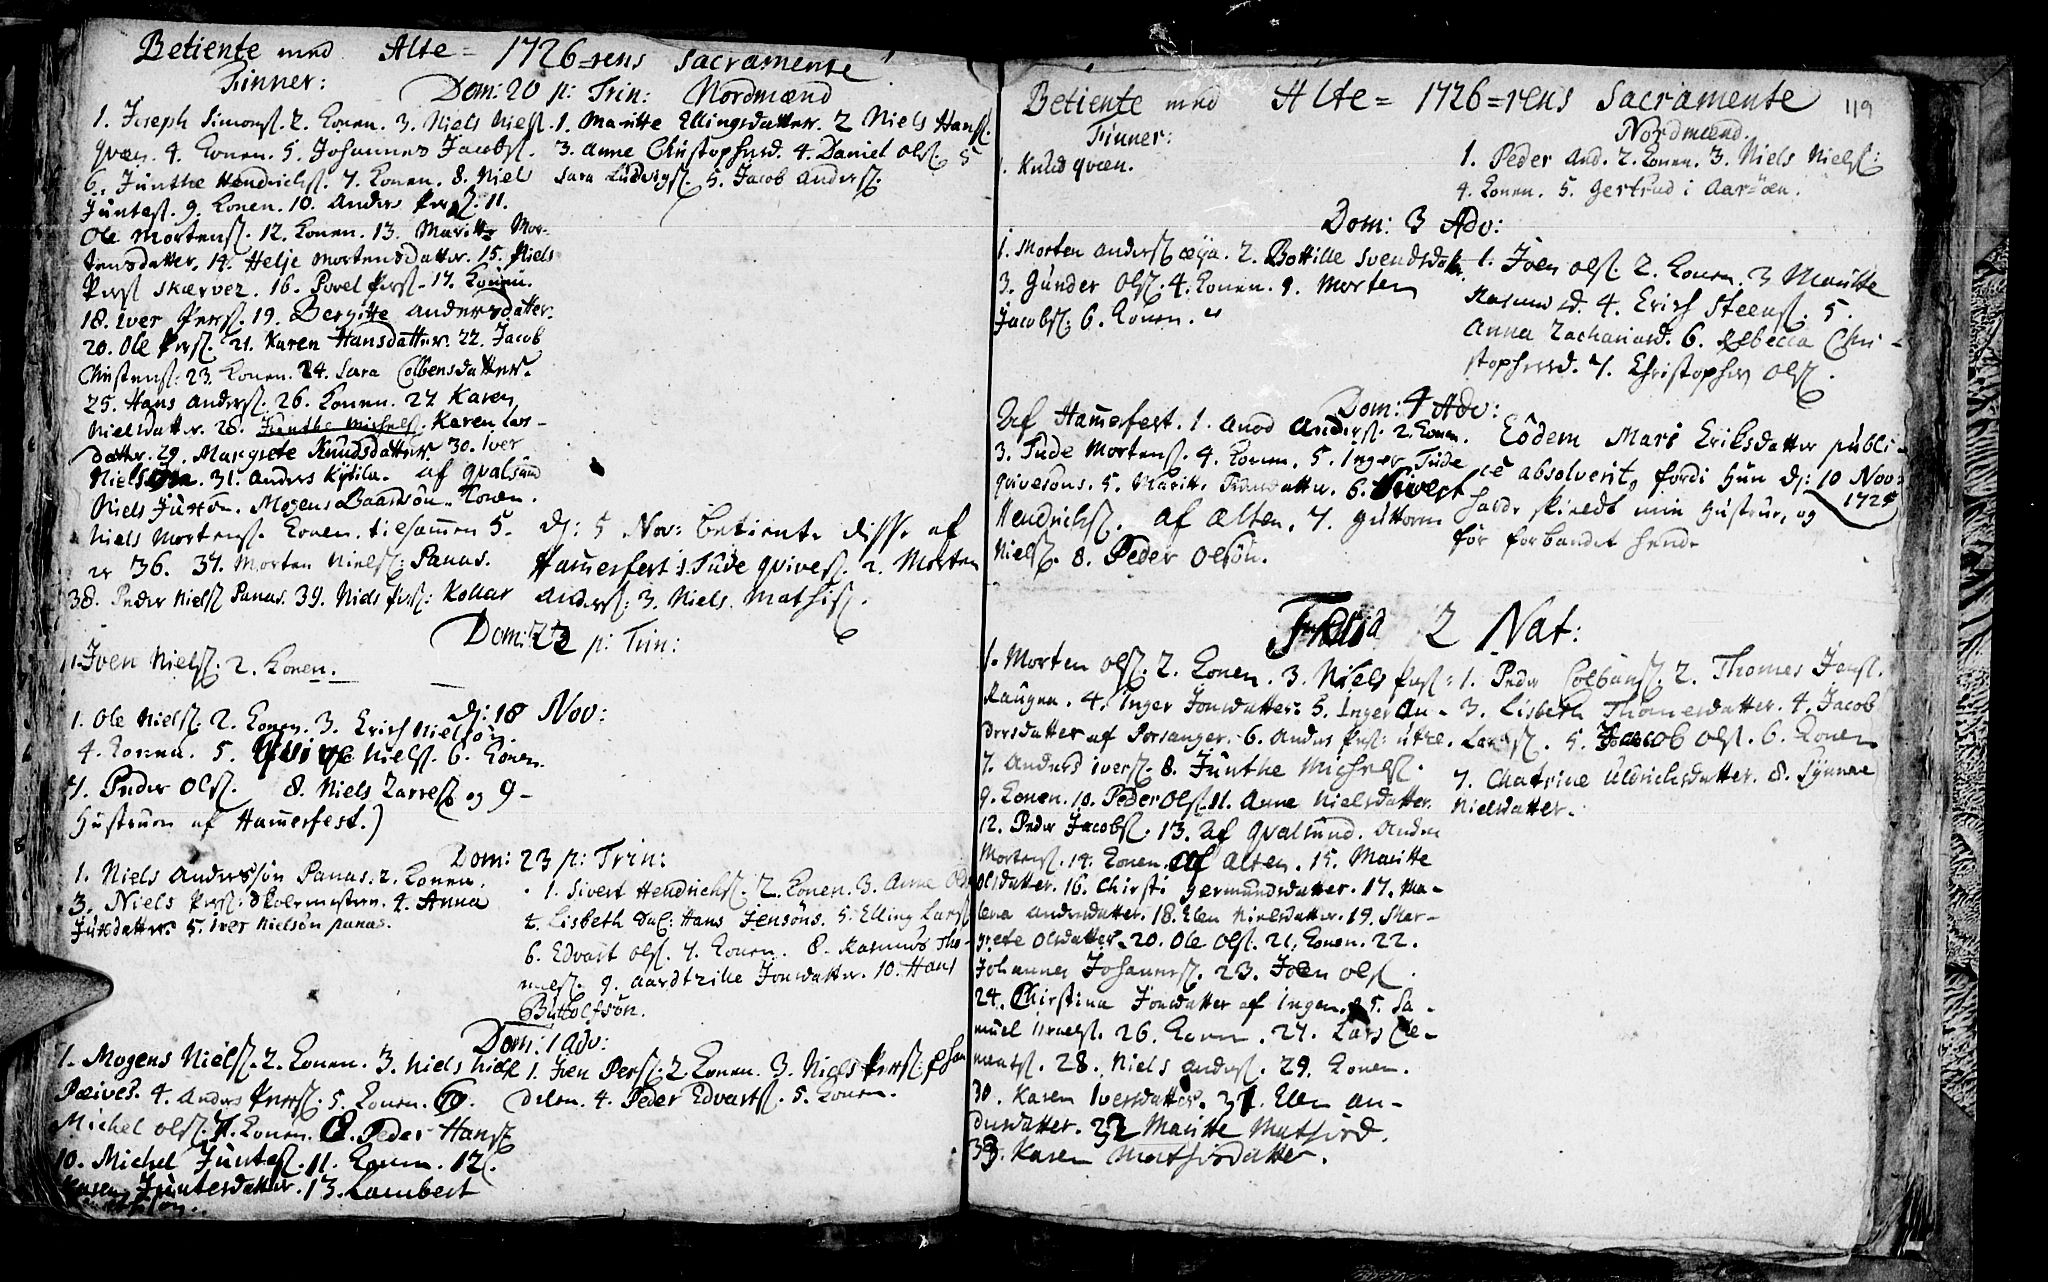 Betiente med Alte = 1726=rens Sacramente
Finner:
Dom: 20 p: Trin: Nordmænd
1. Joseph Simonss. 2. Konen. 3. Niels Nielss.
qvæn. 4. Konen. 5. Johannes Jacobss.
6. Junthe Hendrichss. 7. Konen. 8. Niels
Juntess. 9. Konen. 10. Anders Perss. 11.
Ole Mortenss. 12. Konen. 13. Maritte Mor-
tensdatter. 14. Helje Mortensdatter. 15. Niels
Perss Skærvez. 16. Povel Perss. 17. Konen.
18. Iver Perss. 19. Bergitte Andersdatter.
20. Ole Perss. 21. Karen Hansdatter. 22. Jacob
Christenss: 23. Konen. 24. Sara Colbensdatter.
25. Hans Anderss. 26. Konen. 27 Karen
Nielsdatter. 28. Junthe Michelss. Karen Lars-
datter. 29. Margrete Knudsdatter. 30. Iver
Nielsøn. 31. Anders Kyiila. af qvalsund
Niels Jussøn. Mogens Baardsøn. Konen.
Niels Mortenss. Konen. tilsamen 5.
er 36. 37. Morten Nielss: Panas.
38. Peder Nielss Panas. 39. Niels Perss: Kollar
1. Maritte Ellingsdatter. 2 Niels Hanss.
3. Anne Christophersd. 4. Daniel Olss. 5
Sara Ludvigss. 5. Jacob Anderss.
D: 5 Nov: betient disse af
Hamerfest 1. Tude qvivess. 2. Morten
Anderss: 3. Niels Mathiss.
Dom: 22 p: Trin:
1. Iven Nielss. 2. Konen.
D: 18 Nov:
1. Ole Nielss. 2. Konen. 3. Erich Nielsøn.
4. Konen. 5. Qvive Nielss. 6. Konen.
7. Peder Olss. 8. Niels Larss og 9-
Hustruen af Hamerfest.)
Dom: 23 p: Trin:
1. Niels Andersøn Panas. 2. Konen.
3. Niels Perss: Skolemester. 4. Anna
Jusdatter. 5. Iver Nielsøn panas.
1. Sivert Hendrichss. 2. Konen. 3. Anne
4. Lisbeth Hans Jensøns. 5. Elling Larss
6. Edvart Olss. 7. Konen. 8. Rasmus Tho-
mess. 9. Aardtrike Jonsdatter. 10. Hans
Bottolfsøn.
Dom: 1 Adv:
1. Mogens Nielss. 2. Konen. 3. Niels Nielss
Pæives. 4. Anders Perss. 5. Konen. 6.
Michel Olss. 7. Konen. 8. Peder Hanss
10. Michel Juntess. 11. Konen. 12.
Karen Juntesdatter. 13. Lambert
1. Iven Perss. 2 Konen. 3. Niels Perss:
4. Peder Edvartss. 5. Konen.
Betiente med Alte = 1726=rens Sacramente
119
Finner:
1. Knud qvæn.
Nordmænd.
1. Peder And. 2. Konen. 3. Niels Nielss:
4. Konen. 5. Gertrud i Aar-øen.
Dom: 3 Adv:
1. Morten Anderss æija. 2. Bottille Svendsdatter
3. Gunder Olss. 4. Konen. 9. Morten
Jacobss. 6. Konen.
1. Iven Olss. 2. Konen. 3 Maritte
Rasmusd. 4. Erich Steenss. 5.
Anna Zachariasd. 6. Rebecca Chri-
stophersd. 7. Christopher Olss.
Dom: 4 Adv:
Af Hamerfest. 1. Anod Anderss. 2. Konen.
3. Tude Mortenss. 4. Konen. 5. Inger Tude
qvivesøns. 5. Maritte datter. 6. Sivert
Hendrichss. af Alten. 7. Guttorm
Nielss. 8. Peder Olsøn.
Eodem Mari Eriksdatter publi-
ce absolverit, fordi hun D: 10 Nov:
1725
hafde skieldt min hustrue, og
for forbandet hende
Feria 2 Nat:
1. Morten Olss. 2. Konen. 3. Niels Perss:
Raugna. 4. Inger Jonsdatter. 5. Inger An-
dersdatter af Porsanger. 6. Anders Perss: utre.
7. Anders Iverss. 8. Junthe Michelss.
9. Konen. 10. Peder Olss. 11. Anne Nielsdatter.
12. Peder Jacobss. 13. af qvalsund. Anders
Mortenss. 14. Konen. Af Alten. 15. Maritte
Olsdatter. 16. Chirsti Germundsdatter. 17. Ma-
lena Andersdatter. 18. Elen Nielsdatter. 19. Mar-
grete Olsdatter. 20. Ole Olss. 21. Konen. 22.
Johannes Johanness. 23. Joen Olss.
24. Christina Jonsdatter af Ingen. 25. Sa-
muel Israelss. 26. Konen. 27. Lars Cle-
mentss. 28. Niels Anderss. 29. Konen.
30. Karen Iversdatter. 31. Elen An-
dersdatter. 32 Maritte Mathisd.
33. Karen Mathisdatter.
1. Peder Colbenss. 2. Thomes Jenss.
3. Lisbeth Thomesdatter. 4. Jacob
Larss. 5. Jacob Olss. 6. Konen
7. Chatrine Uldrichsdatter. 8. Synnae
Nielsdatter.